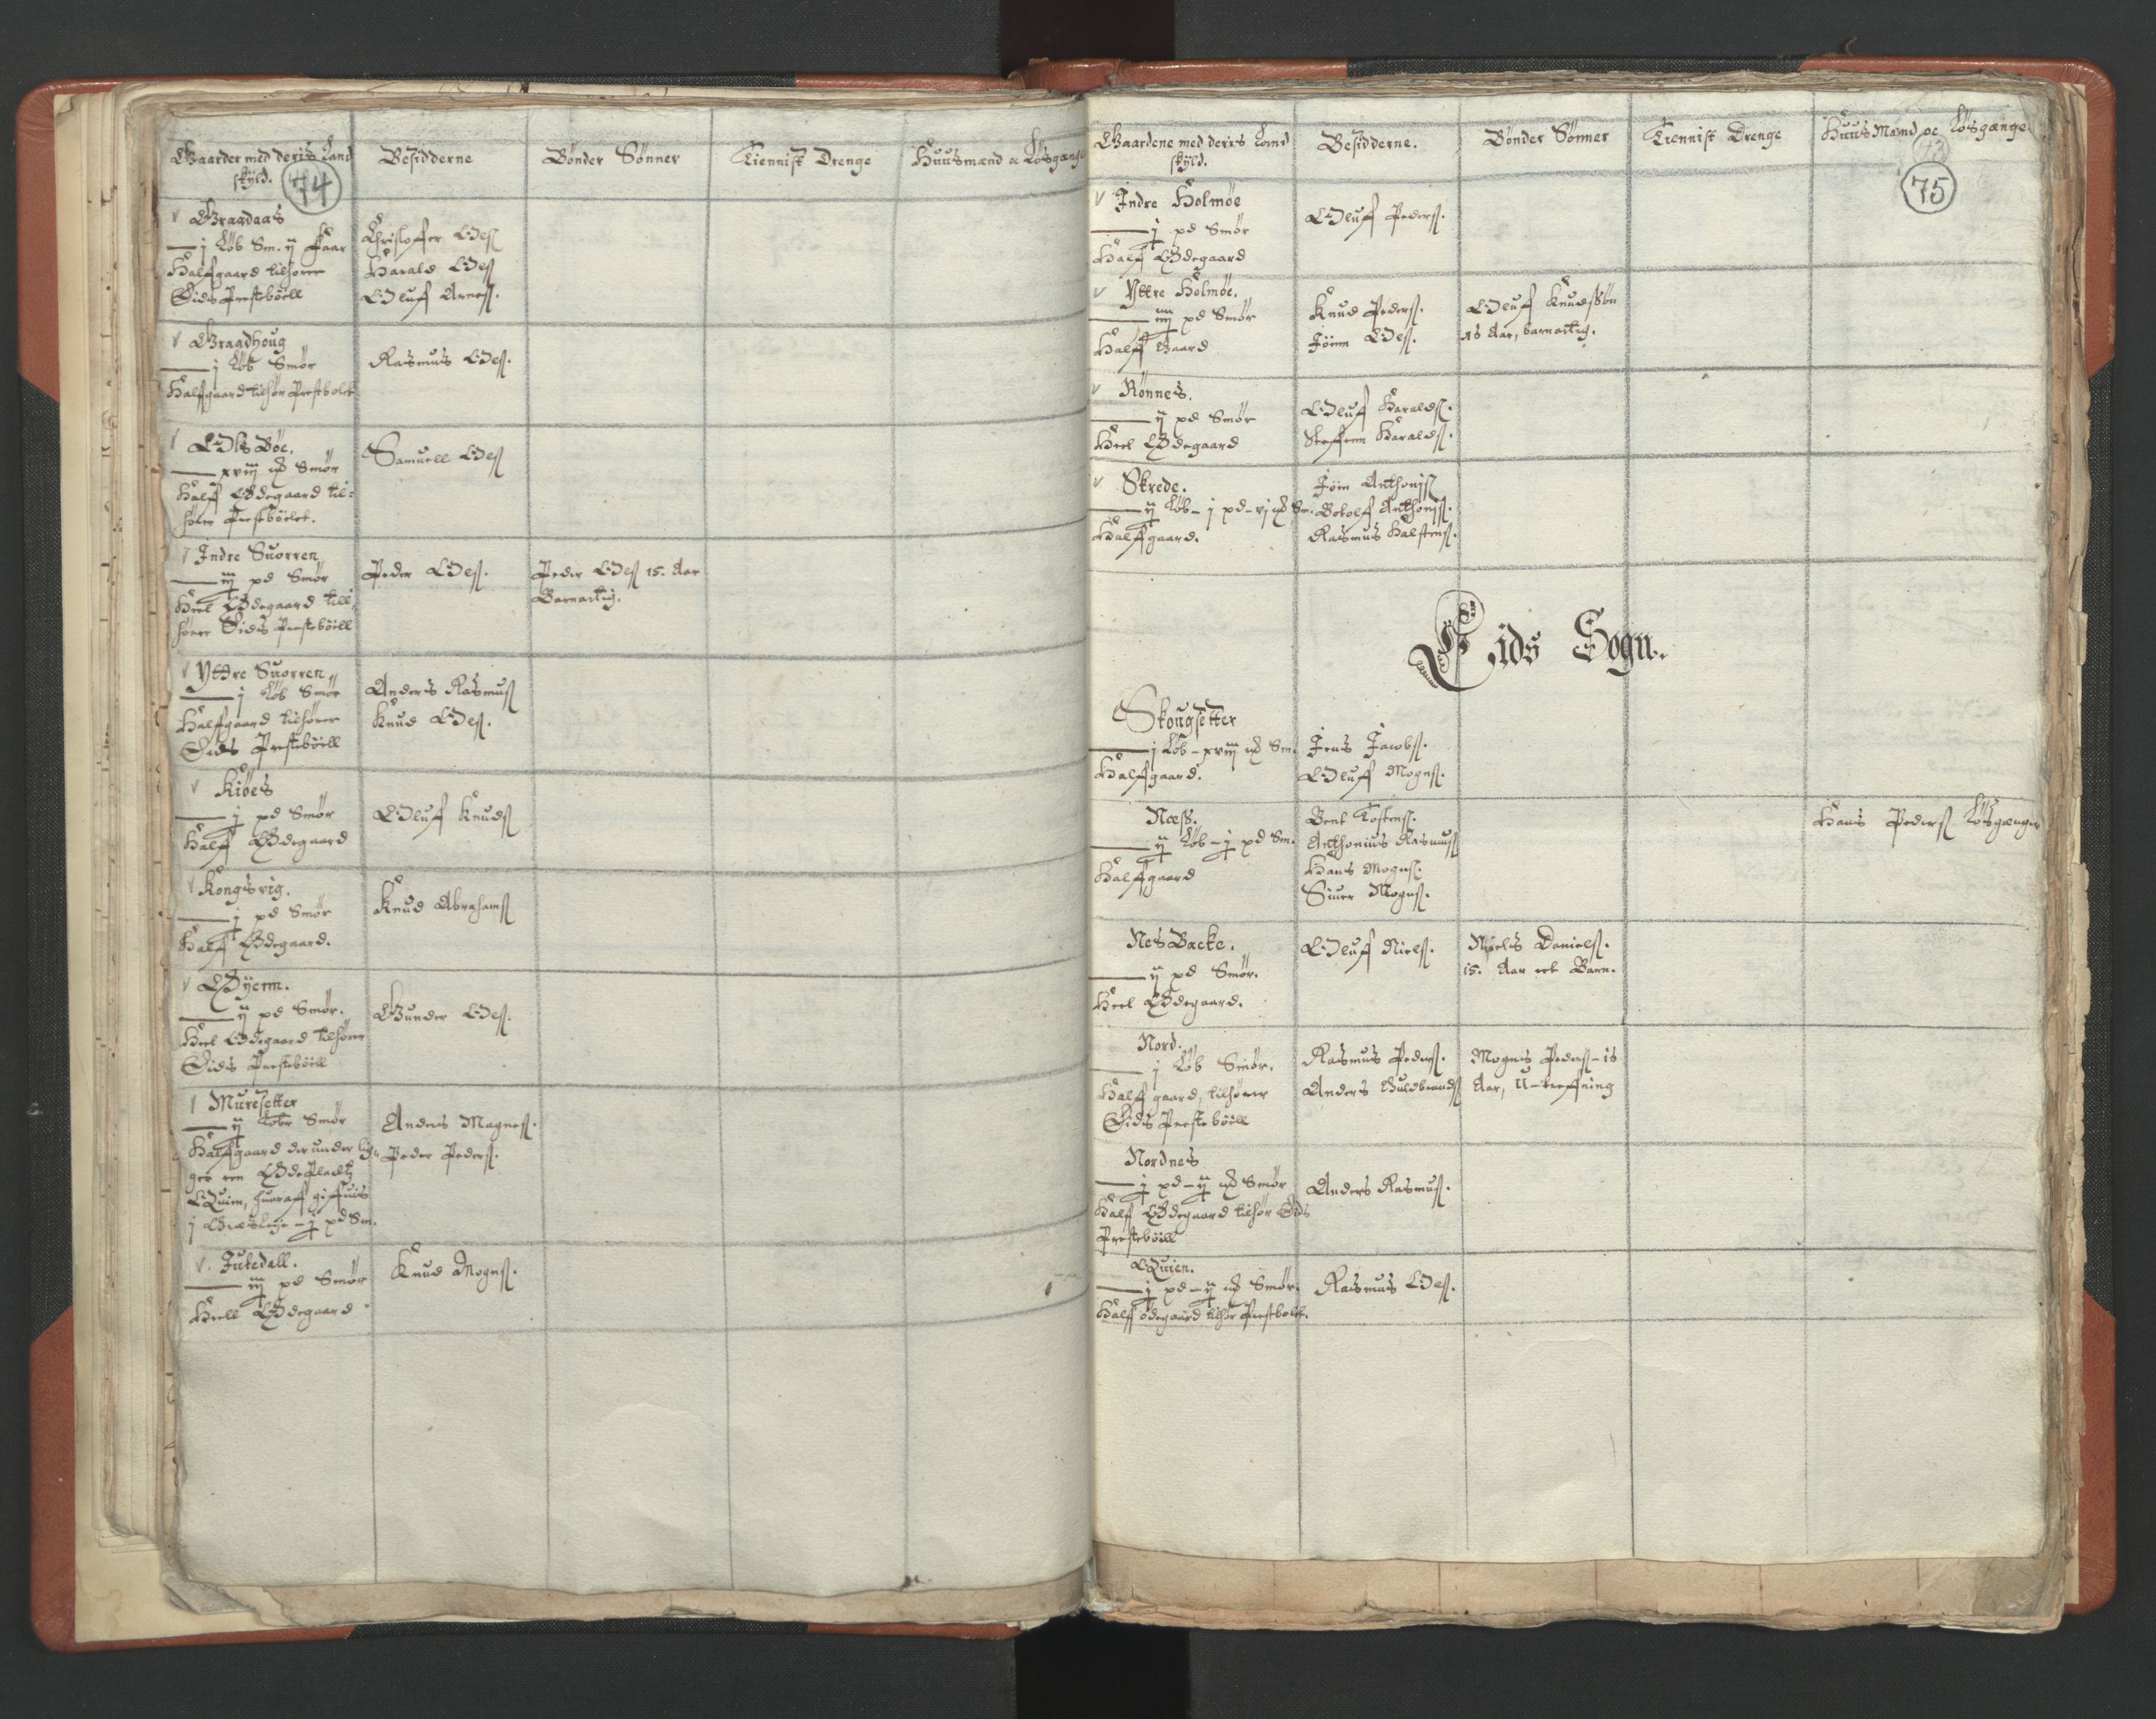 Gaarder med deris Land
skyld. 74
Besidderne
Bønder Sønner
Tiennist Drenge
Huusmænd oc Løsgænge
Graadaas
j Løb Sm. ij Faar
Halfgaard tilhører
Eids Prestebøell
Christoffer Olsß
Harald Olsß
Oluf Arneß.
Graadhoug
j Løb Smør
Halfgaard tilhør Prestbolet
Rasmus Olsß.
Ols Bøe.
xviij mk Smør
Half Ødegaard til=
hører Prestebøelet.
Samuell Olsß
Indre Suorren
iij pd Smør
Heel Ødegaard till
hører Eids Prestebøell
Peder Olsß.
Peder Olsß 15. Aar
Barnactig.
Yttre Suorren
j Løb Smør
Halfgaard tilhører
Eids Prestebøell
Anders Rasmusß
Knud Olsß.
Kiøes
j pd Smør
Half Ødegaard
Oluf Knudsß
Kongsvig.
j pd Smør
Half Ødegaard.
Knud Abrahamsß
Øyenn.
ij pd Smør.
Heel Ødegaard tilhører
Eids Prestebøell
Gunder Olsß.
Muresetter
ij Løbe Smør
Halfgaard der under lig=
ger een Ødepladtz
Quien, huoraff giffuis
j Græsleye - j pd Sm.
Anders Magneß.
Peder Pedersß.
Jutedall.
iij pd Smør
Heell Ødegaard
Knud Mognsß.
Gaardene med deris Land
skyld.
Besidderne.
Bønder Sønner
Tiennist Drenge
Huus Mænd oc Løsgænge
75
Indre Holmøe
j pd Smør
Half Ødegaard
Oluf Pedersß.
Yttre Holmøe.
iiij pd Smør
Half Gaard
Knud Pedersß.
Jönn Olsß.
Oluf Knudssøn
15 Aar, barnactig.
Rønnes.
ij pd Smør
Heel Ødegaard
Oluf Haraldsß.
Steffenn Haraldsß.
Skrede.
ij Løb - j pd - vj mk Sm.
Halfgaard.
Jøen Anthonisß
Botolf Anthonisß.
Rasmus Halstensß.
Eids Sogn.
Skougsetter
j Løb - xviij mk Sm.
Halfgaard.
Jens Jacobsß.
Oluf Mognsß.
Næss.
ij Løb - j pd Sm.
Halfgaard
Bent Tostensß.
Anthonius Rasmusß
Hans Mognsß.
Siuer Mognsß.
Hans Pedersß Løsgænger
Nes Backe.
ij pd Smør.
Heel Ødegaard.
Oluf Nielsß.
Niels Danielsß.
15. Aar eet Barn.
Nord.
j Løb Smør.
Half gaard, tilhører
Eids Prestebøell
Rasmus Pedersß.
Anders Guldbrandsß
Mogns Pedersß - 18
Aar,
Nordnes
j pd - ij mk Smør
Half Ødegaard tilhør Eids
Prestebøell
Anders Rasmusß.
Quien.
j pd - ij mk Smør.
Half ødegaard tilhør Prestbolet.
Rasmus Olsß.